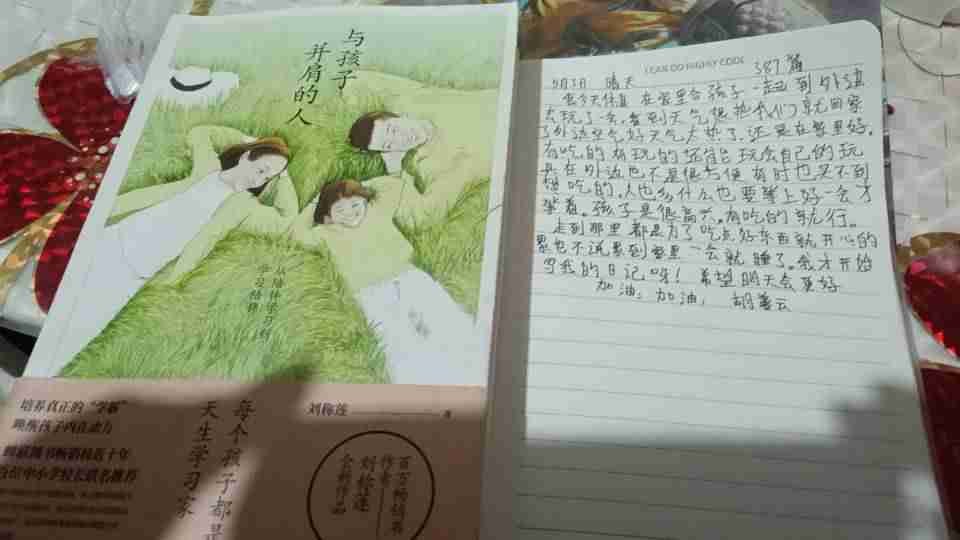 与孩子
并肩的人
从陪伴学习到
学习陪伴
培养真正的“学霸”
唤醒孩子内在动力
每个孩子都是
天生学习家
刘称莲
著
百万畅销书
作者
刘称莲
全新作品
I CAN DO HIGHLY CODE
5月3日 晴天 387篇
我今天休息 在家里合孩子一起到外边
去玩了一会,看到天气很热我们就回家
了外边空气好天气太热了,还是在家里好,
有吃的有玩的还能玩会自己的玩
具在外边也不是很方便有时也买不到
想吃的,人也多什么也要等上好一会才
拿着。孩子是很高兴,有吃的就行。
走到那里都是为了吃点好东西就开心的
累也不说累到家里一会就睡了。我才开始
写我的日记呀!希望明天会更好
加油,加油,胡善云